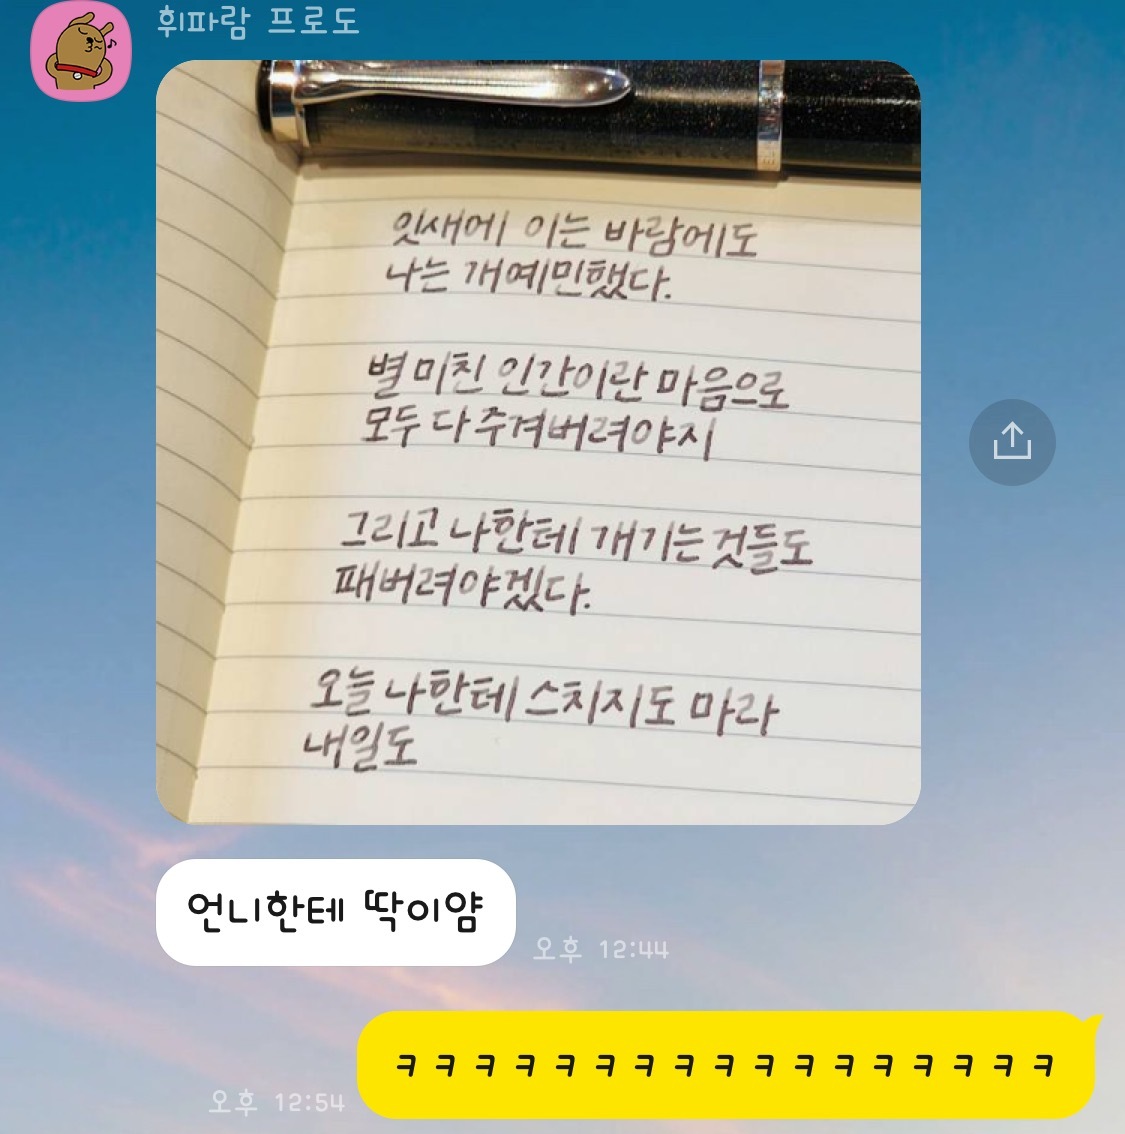 휘파람 프로도
잇새에 이는 바람에도
나는 개예민했다.
별 미친 인간이란 마음으로
모두 다 주겨버려야지
그리고 나한테 개기는 것들도
패버려야겠다.
오늘 나한테 스치지도 마라
내일도
언니한테 딱이얌
오후 12:44
ㅋㅋㅋㅋㅋㅋㅋㅋㅋㅋㅋㅋㅋㅋㅋㅋㅋ
오후 12:54